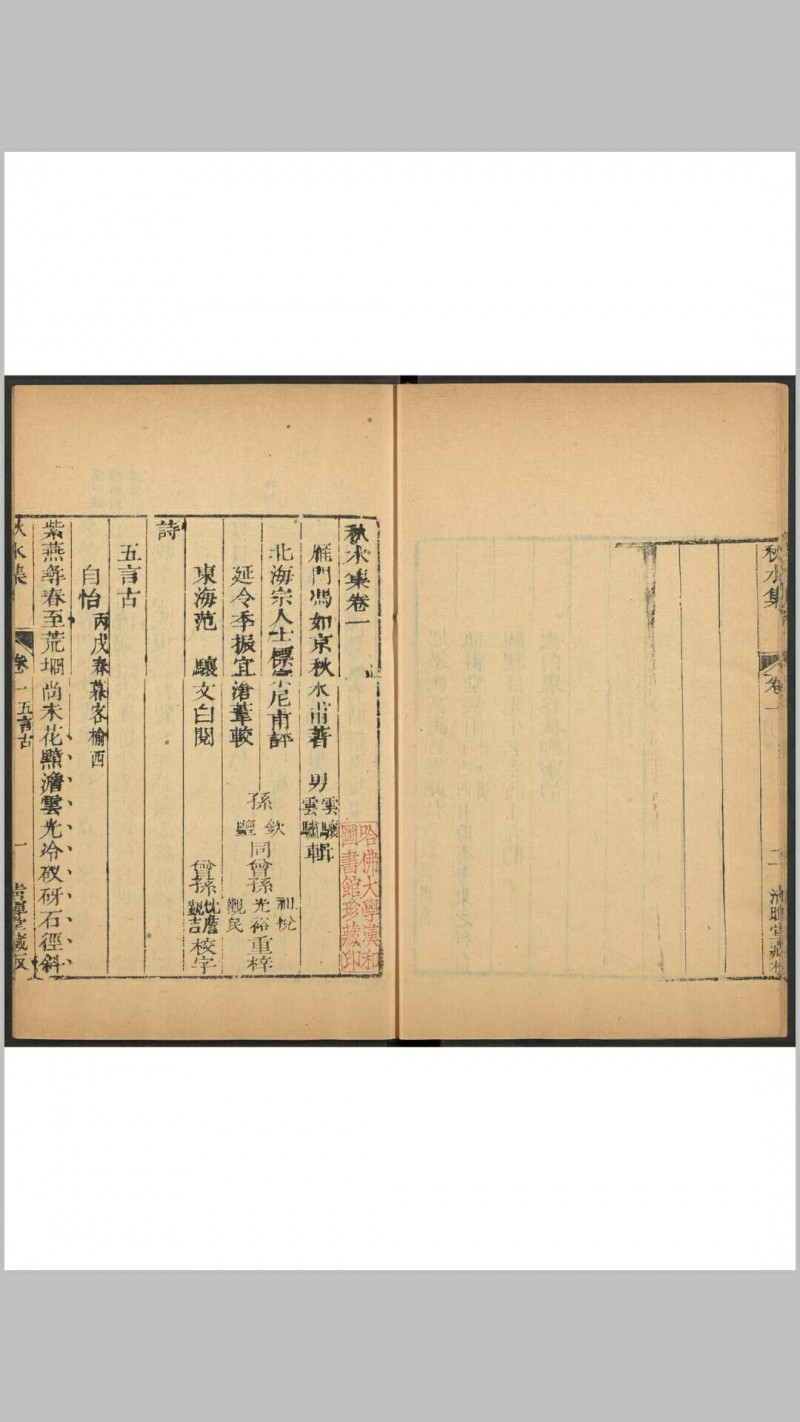 秋水集
卷一
二
秋水集卷一
雁門馮如京秋水甫著
男雲驤
雲驌輯
北海宗人士標宗尼甫評
延令季振宜滄葦較
孫欽
同曾孫
光裕
觀民
重梓
東海范驤文白閱
曾孫
觀吉
校字
詩
五言古
自怡丙戌春暮客榆西
紫燕尋春至荒堈尚未花黯澹雲光冷砑石徑斜
秋水集
卷一五言古
一
哈佛大學漢和
圖書館珍藏印